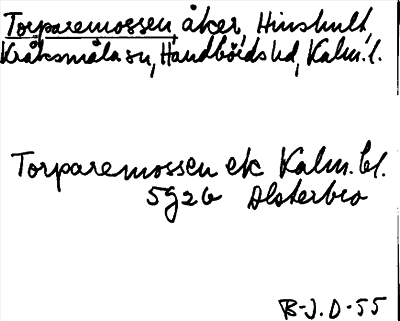 Torparemossen, åker, Hinshult,
Kråksmåla sn, Handbörds hd, Kalm. l.
Torparemossen ek Kalm. bl.
5g2b Alsterbro
B-J.O-55